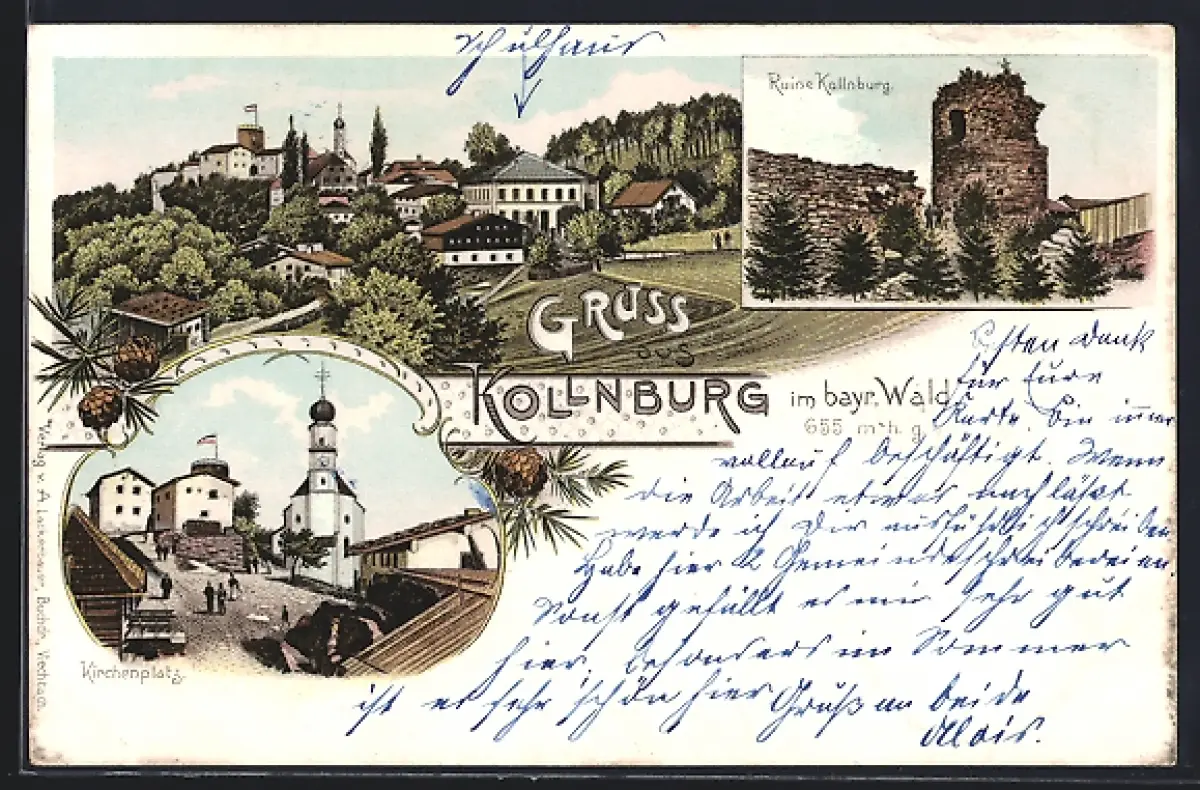 Schulhaus
Ruine Kollnburg.
GRUSS
aus
KOLLNBURG im bayr. Wald
655 m h. g.
Kirchenplatz.
Verlag v. A. Lackerbauer, Buchdr., Viechtach.
Besten Dank
für Eure
Karte. Bin immer
vollauf beschäftigt. Wenn
die Arbeit etwas nachläßt
werde ich Dir ausführlich schreiben
Habe hier 2 Gemeindeschreibereien.
Sonst gefällt es mir sehr gut
hier, besonders im Sommer
ist es sehr schön hier Gruß an beide
Alois.